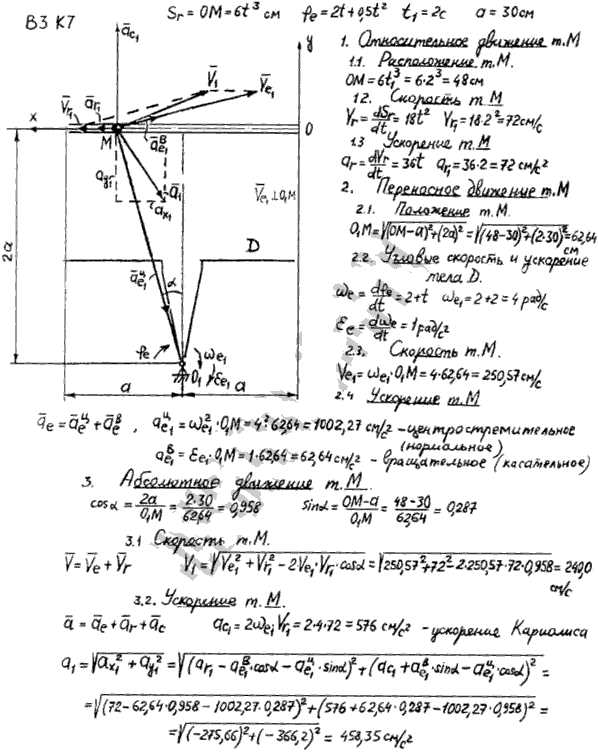 В3 К7
Sr = OM = 6t³ см φe = 2t + 0,5t² t₁ = 2с a = 30см
ā_c₁
y
V̄₁
V̄_e₁
V̄_r₁
ā_r₁
x
M
O
ā_e₁ᴮ
a_y₁
ā₁
a_x₁
V̄_e₁ ⊥ O₁M
2a
D
ā_e₁ᶣ
α
φe
ω_e₁
O₁
ε_e₁
a
a
1. Относительное движение т.М
1.1. Расположение т.М.
OM = 6t₁³ = 6·2³ = 48см
1.2. Скорость т.М
Vr = dSr/dt = 18t² V_r₁ = 18·2² = 72см/с
1.3 Ускорение т.М
ar = dVr/dt = 36t a_r₁ = 36·2 = 72 см/с²
2. Переносное движение т.М
2.1. Положение т.М.
O₁M = √((OM-a)²+(2a)²) = √((48-30)²+(2·30)²) = 62,64 см
2.2. Угловые скорость и ускорение
тела D.
ωe = dφe/dt = 2+t ω_e₁ = 2+2 = 4 рад/с
εe = dωe/dt = 1 рад/с²
2.3. Скорость т.М.
V_e₁ = ω_e₁·O₁M = 4·62,64 = 250,57см/с
2.4 Ускорение т.М
āe = āeᶣ + āeᴮ , a_e₁ᶣ = ω_e₁²·O₁M = 4²·62,64 = 1002,27 см/с² - центростремительное
(нормальное)
a_e₁ᴮ = ε_e₁·O₁M = 1·62,64 = 62,64 см/с² - вращательное (касательное)
3. Абсолютное движение т.М.
cosα = 2a/O₁M = 2·30/62,64 = 0,958 sinα = OM-a/O₁M = 48-30/62,64 = 0,287
3.1 Скорость т.М.
V̄ = V̄e + V̄r V₁ = √(V_e₁² + V_r₁² - 2V_e₁·V_r₁·cosα) = √(250,57²+72²-2·250,57·72·0,958) = 240,0 см/с
3.2. Ускорение т.М.
ā = āe + ār + āc a_c₁ = 2ω_e₁V_r₁ = 2·4·72 = 576 см/с² - ускорение Кариолиса
a₁ = √(a_x₁² + a_y₁²) = √((a_r₁ - a_e₁ᴮ·cosα - a_e₁ᶣ·sinα)² + (a_c₁ + a_e₁ᴮ·sinα - a_e₁ᶣ·cosα)²) =
= √((72-62,64·0,958-1002,27·0,287)² + (576+62,64·0,287-1002,27·0,958)²) =
= √((-275,66)²+(-366,2)²) = 458,35 см/с²